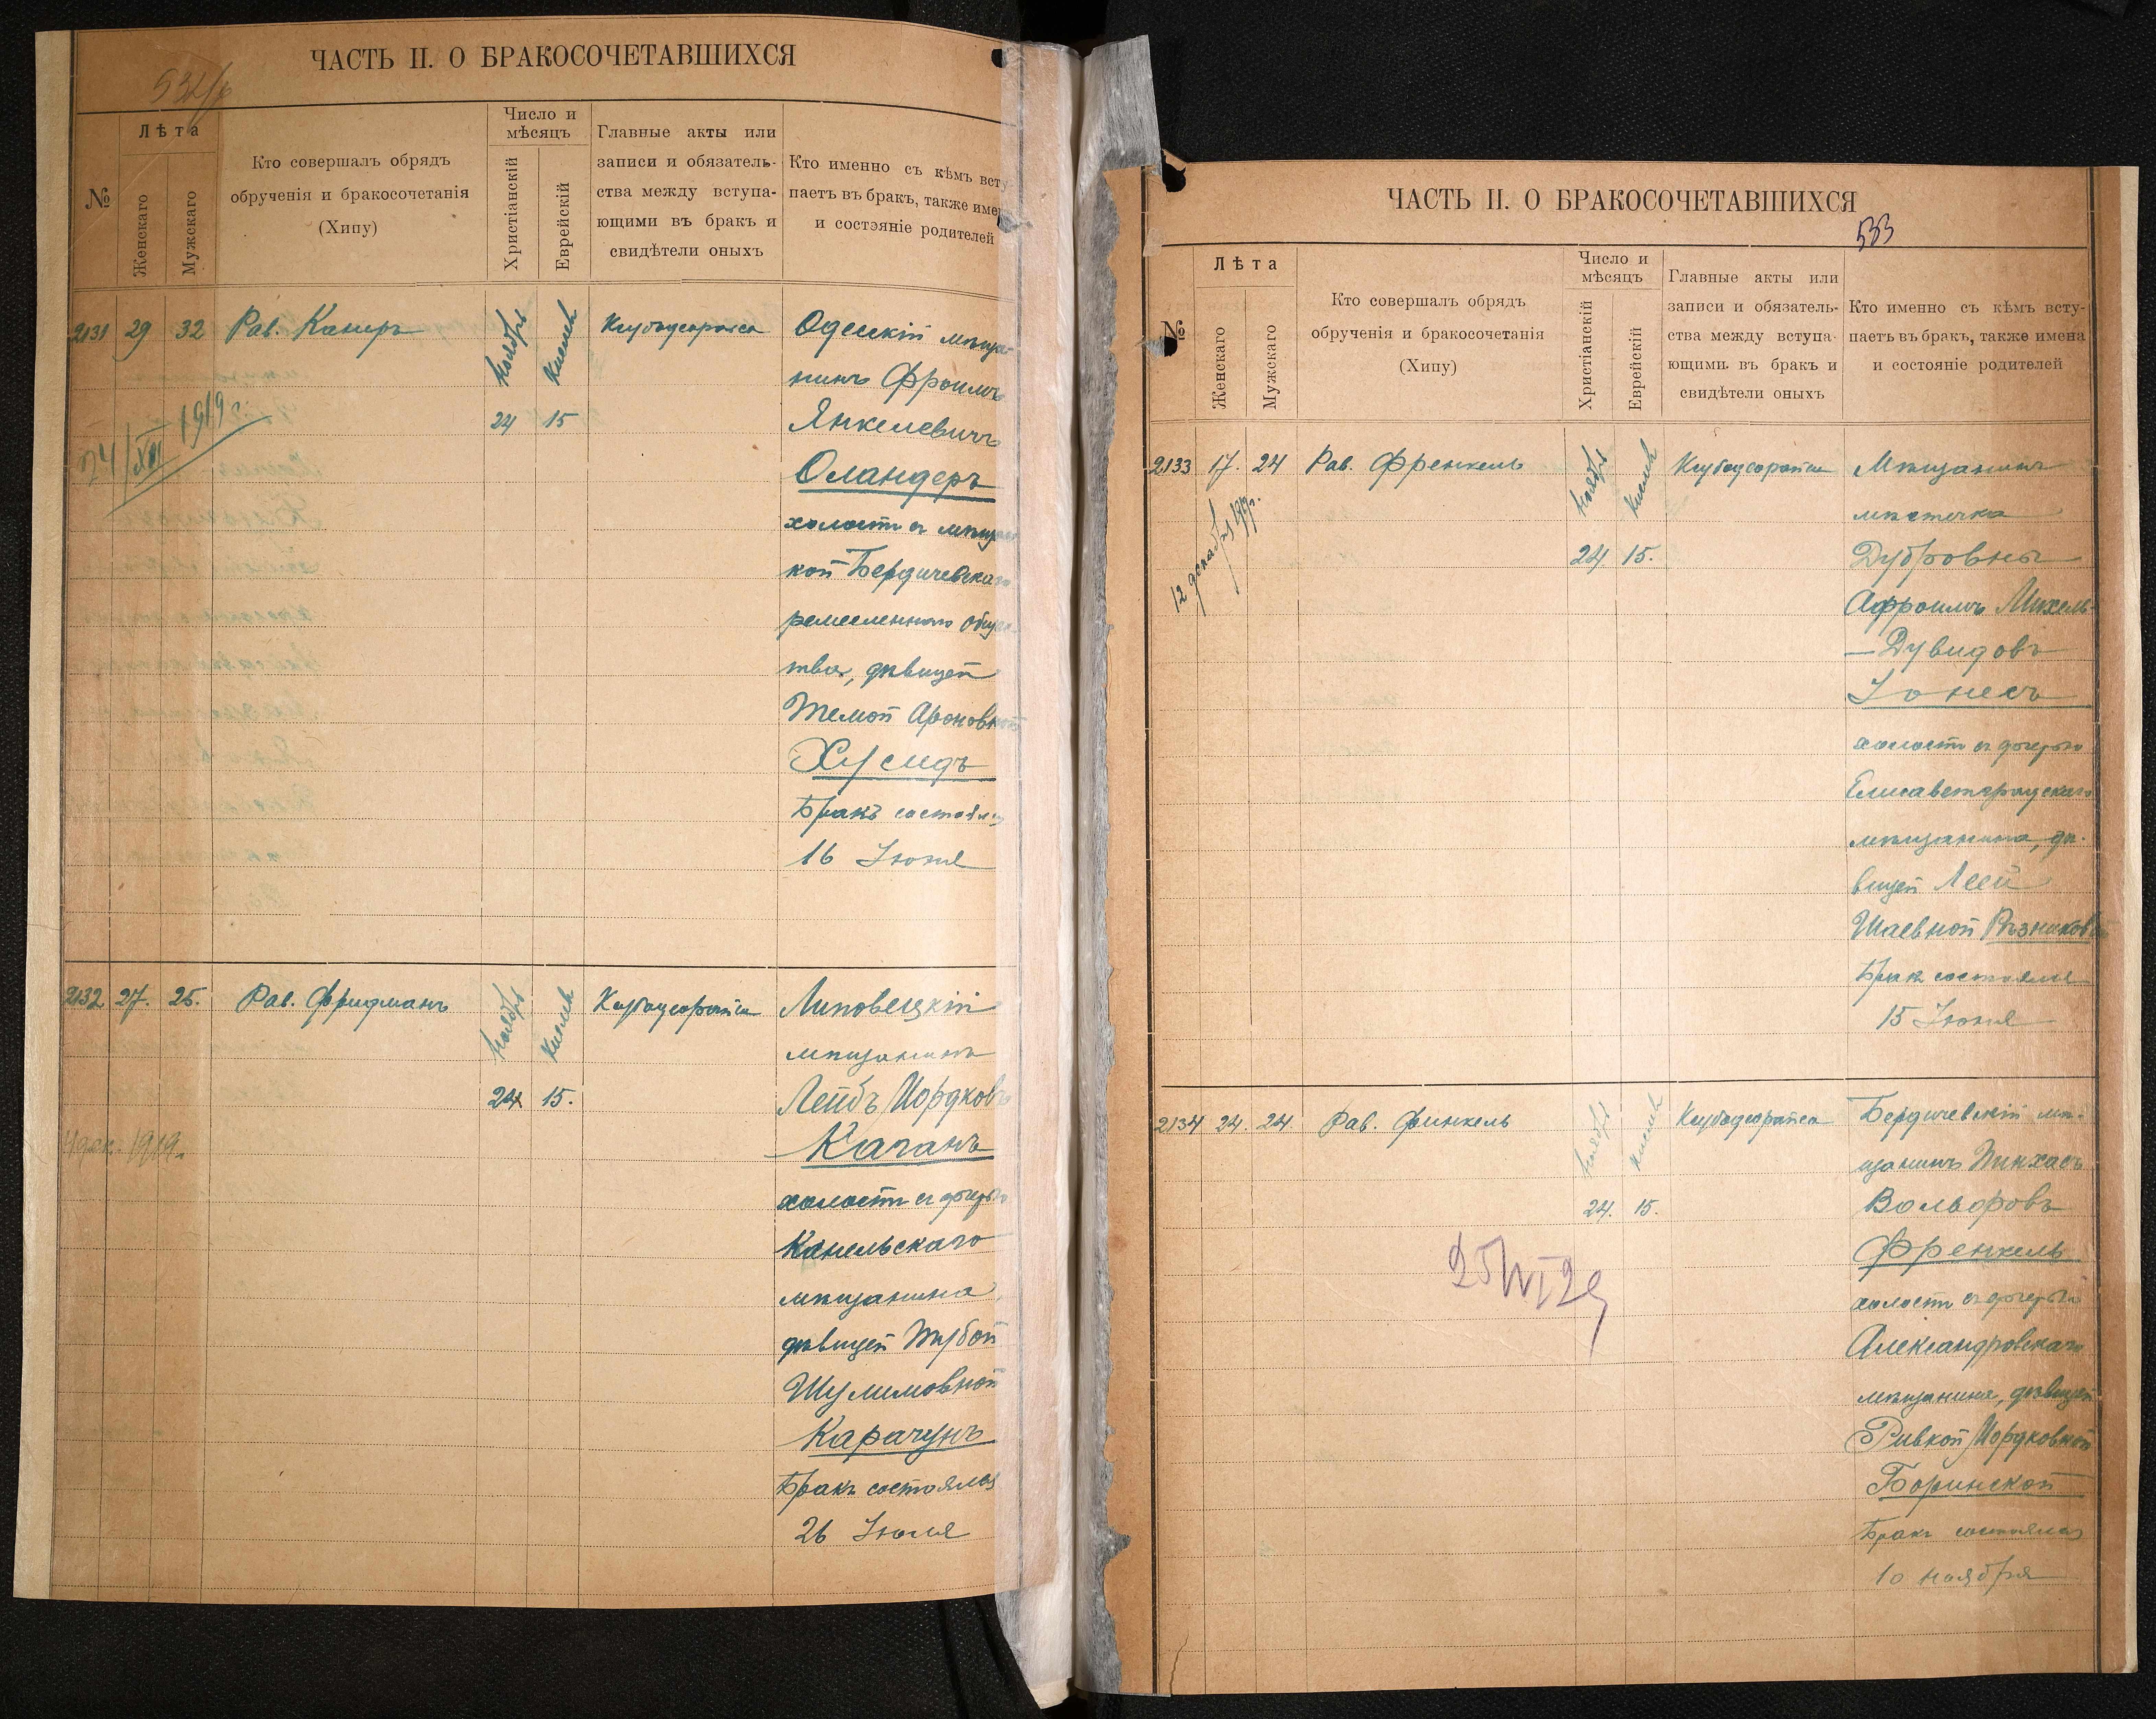 ЧАСТЬ II. О БРАКОСОЧЕТАВШИХСЯ
№
Лѣта
Женскаго
Мужскаго
Кто совершалъ обрядъ
обрученія и бракосочетанія
(Хипу)
Число и
мѣсяцъ
Христіанскій
Еврейскій
Главные акты или
записи и обязатель-
ства между вступа-
ющими въ бракъ и
свидѣтели оныхъ
Кто именно съ кѣмъ всту
паетъ въ бракъ, также имен
и состэяніе родителей
2131 29 32 Рав. Каперъ
Ноябрь Кислев
24 15
24/XII 1919 г.
Одескій мѣща
нинъ Фроимъ
Янкелевичъ
Оландеръ
холостъ съ мѣщан
кой Бердичевскаго
ремесленнаго Общес
тва, дѣвицей
Темой Ароновной
Хусидъ
Бракъ состоялся
16 Іюня
2132 27. 25. Рав. Фридманъ
Ноябрь Кислев
24 15.
4 дек. 1919.
Липовецкій
мѣщанинъ
Лейбъ Мордковъ
Каганъ
холостъ съ дочерью
Канельскаго
мѣщанина,
дѣвицей Тубой
Шулимовной
Карачунъ
Бракъ состоялся
26 Іюля
ЧАСТЬ II. О БРАКОСОЧЕТАВШИХСЯ
533
№
Лѣта
Женскаго
Мужскаго
Кто совершалъ обрядъ
обрученія и бракосочетанія
(Хипу)
Число и
мѣсяцъ
Христіанскій
Еврейскій
Главные акты или
записи и обязатель-
ства между вступа-
ющими въ бракъ и
свидѣтели оныхъ
Кто именно съ кѣмъ всту-
паетъ въ бракъ, также имена
и состояніе родителей
2133 17. 24 Рав. Френкель
Ноябрь Кислев
24 15.
12 декабря 1919 г.
Мѣщанинъ
мѣстечка
Дубровны
Афроимъ Михель-
—Дувидовъ
Іонесъ
холостъ съ дочерью
Елисаветградскаго
мѣщанина, дѣ-
вицей Леей
Шаевной Рѣзниковой
Бракъ состоялся
15 Іюня
2134 24. 24. Рав. Финкель
Ноябрь Кислев
24. 15.
Бердичевскій мѣ-
щанинъ Пинхасъ
Вольфовъ
Френкель
холостъ съ дочерью
Александровскаго
мѣщанина, дѣвицей
Ривкой Мордковной
Боринской
Бракъ состоялся
10 ноября